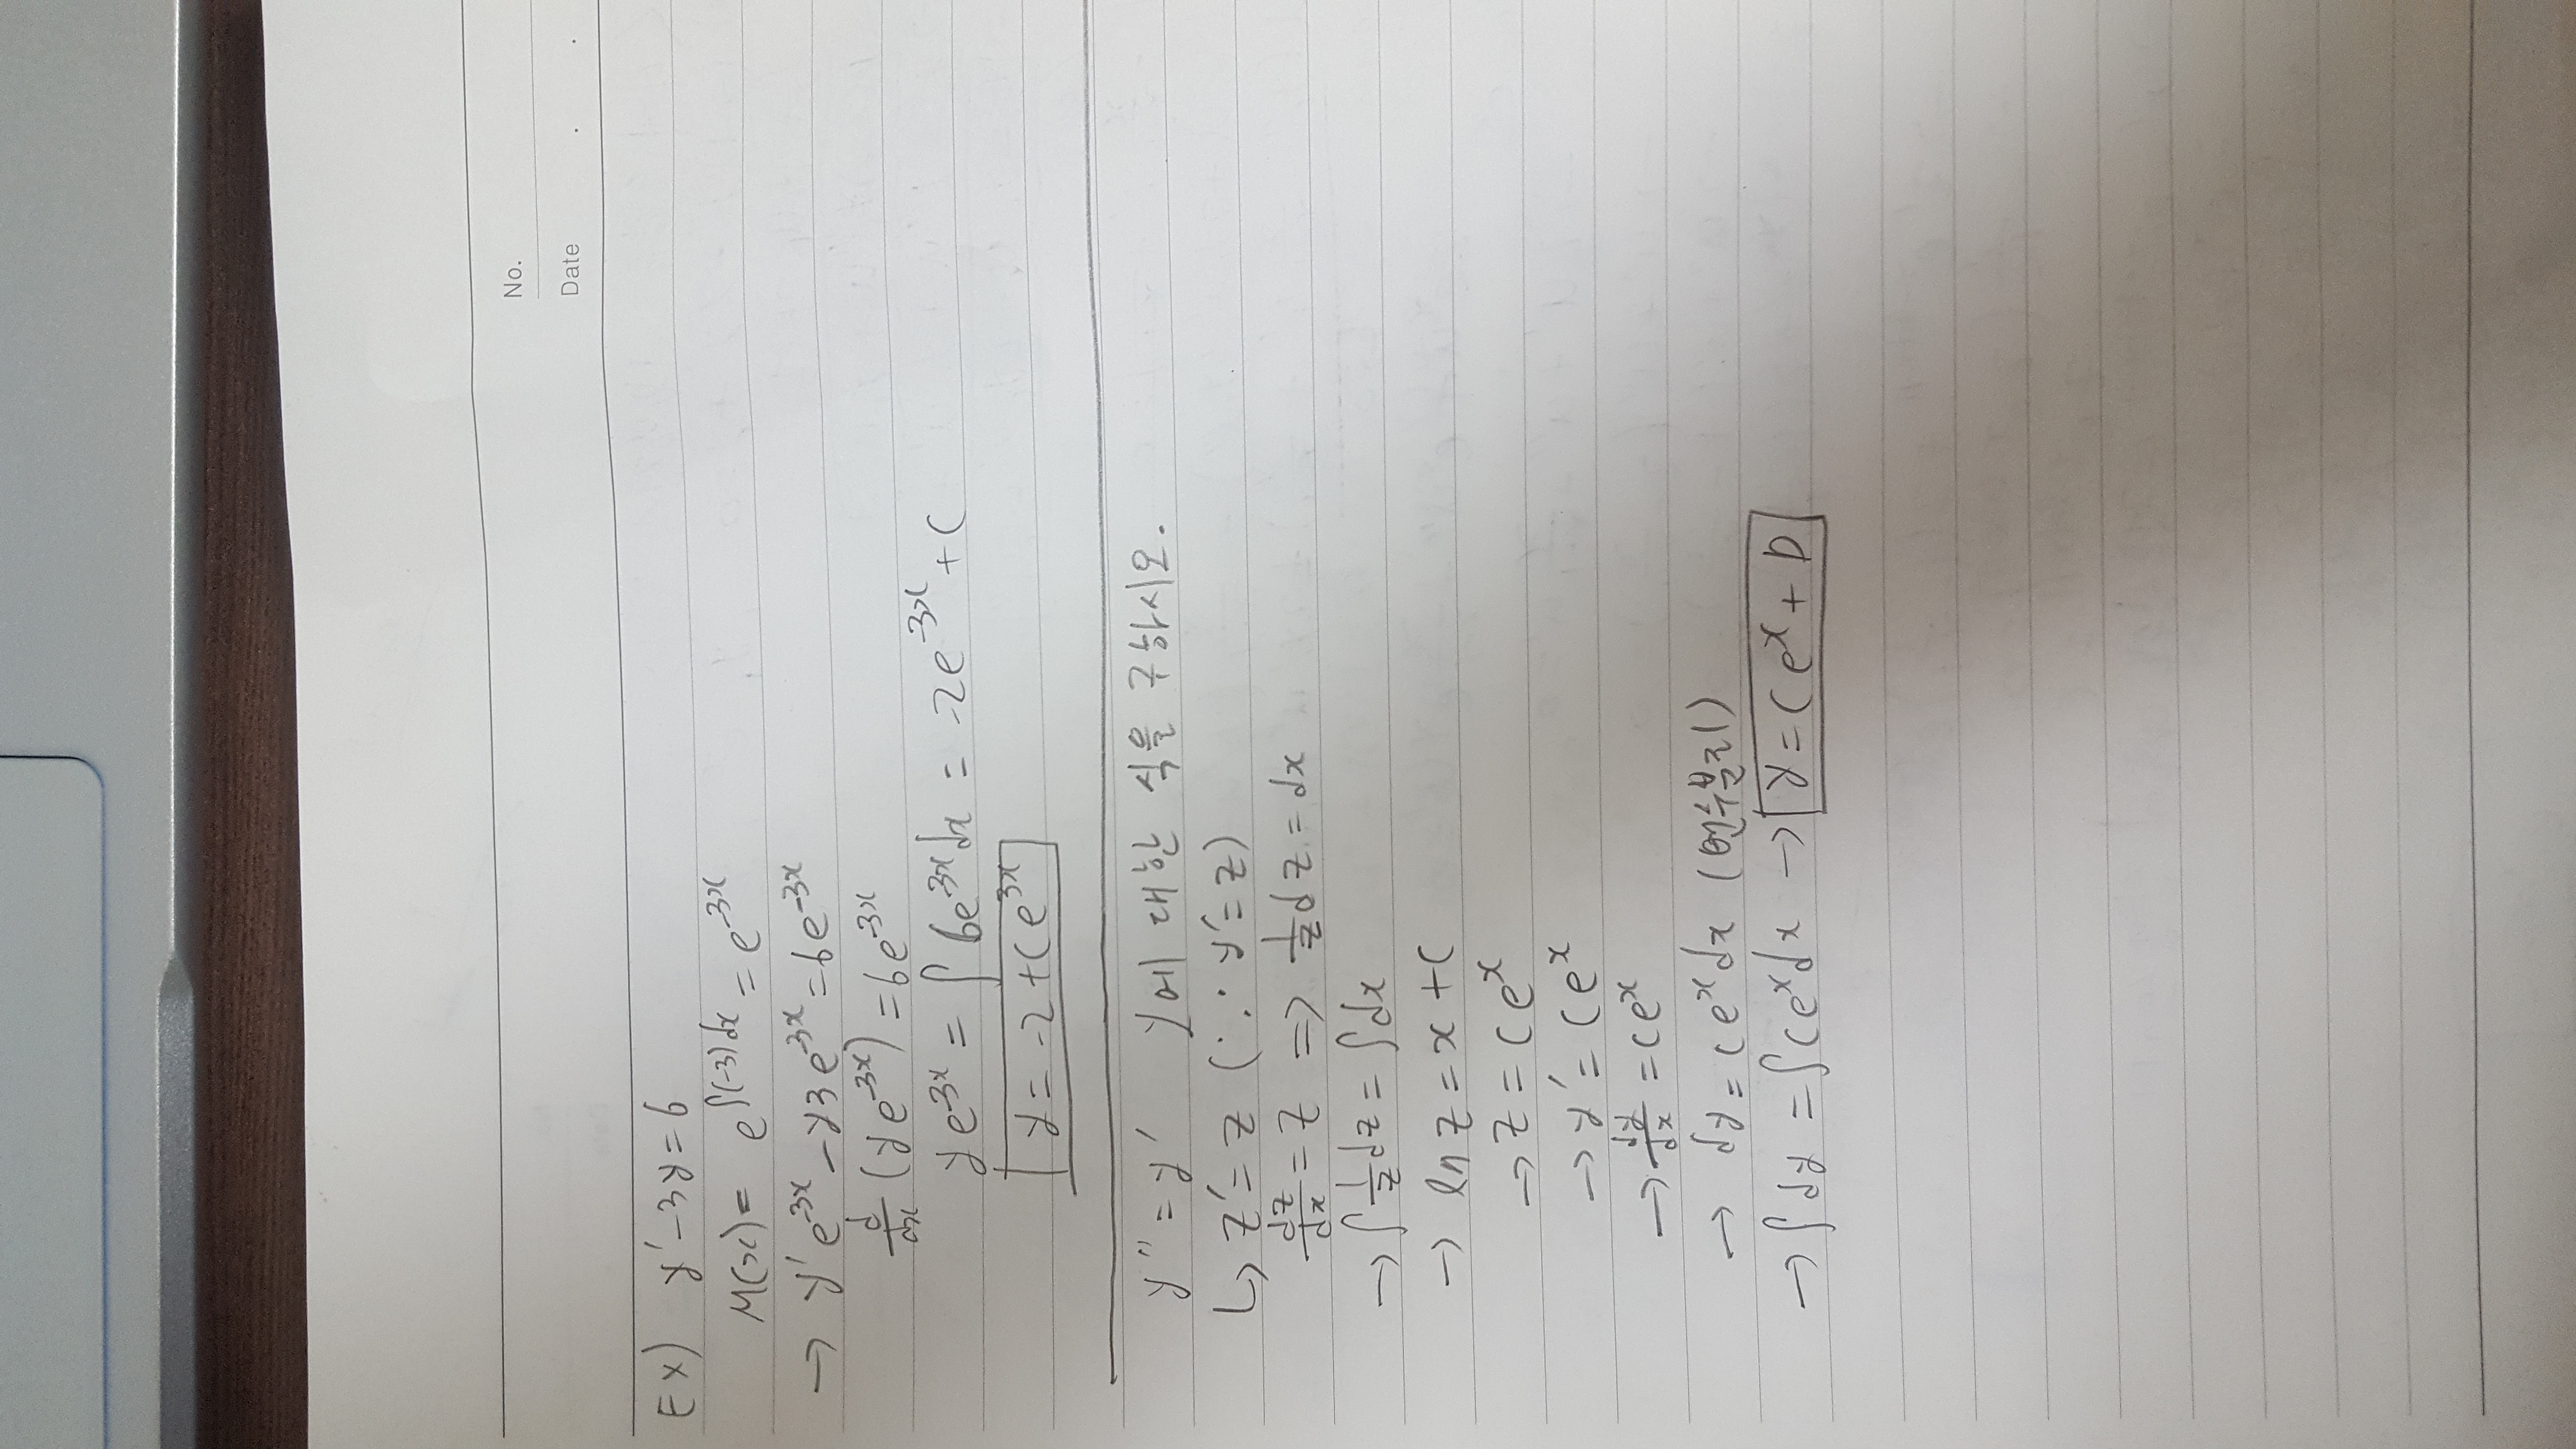 No.
Date . .
EX) y' - 3y = 6
M(x) = e^{∫(-3)dx} = e^{-3x}
→ y'e^{-3x} - y3e^{-3x} = 6e^{-3x}
d/dx (ye^{-3x}) = 6e^{-3x}
ye^{-3x} = ∫6e^{-3x}dx = -2e^{-3x} + C
y = -2 + Ce^{3x}
y'' = y' y에 대한 식을 구하시오.
↳ z' = z (∵ y' = z)
dz/dx = z ⇒ 1/z dz = dx
→ ∫1/z dz = ∫dx
→ ln z = x + C
→ z = Ce^x
→ y' = Ce^x
→ dy/dx = Ce^x
→ dy = Ce^x dx (변수분리)
→ ∫dy = ∫Ce^x dx → y = Ce^x + D